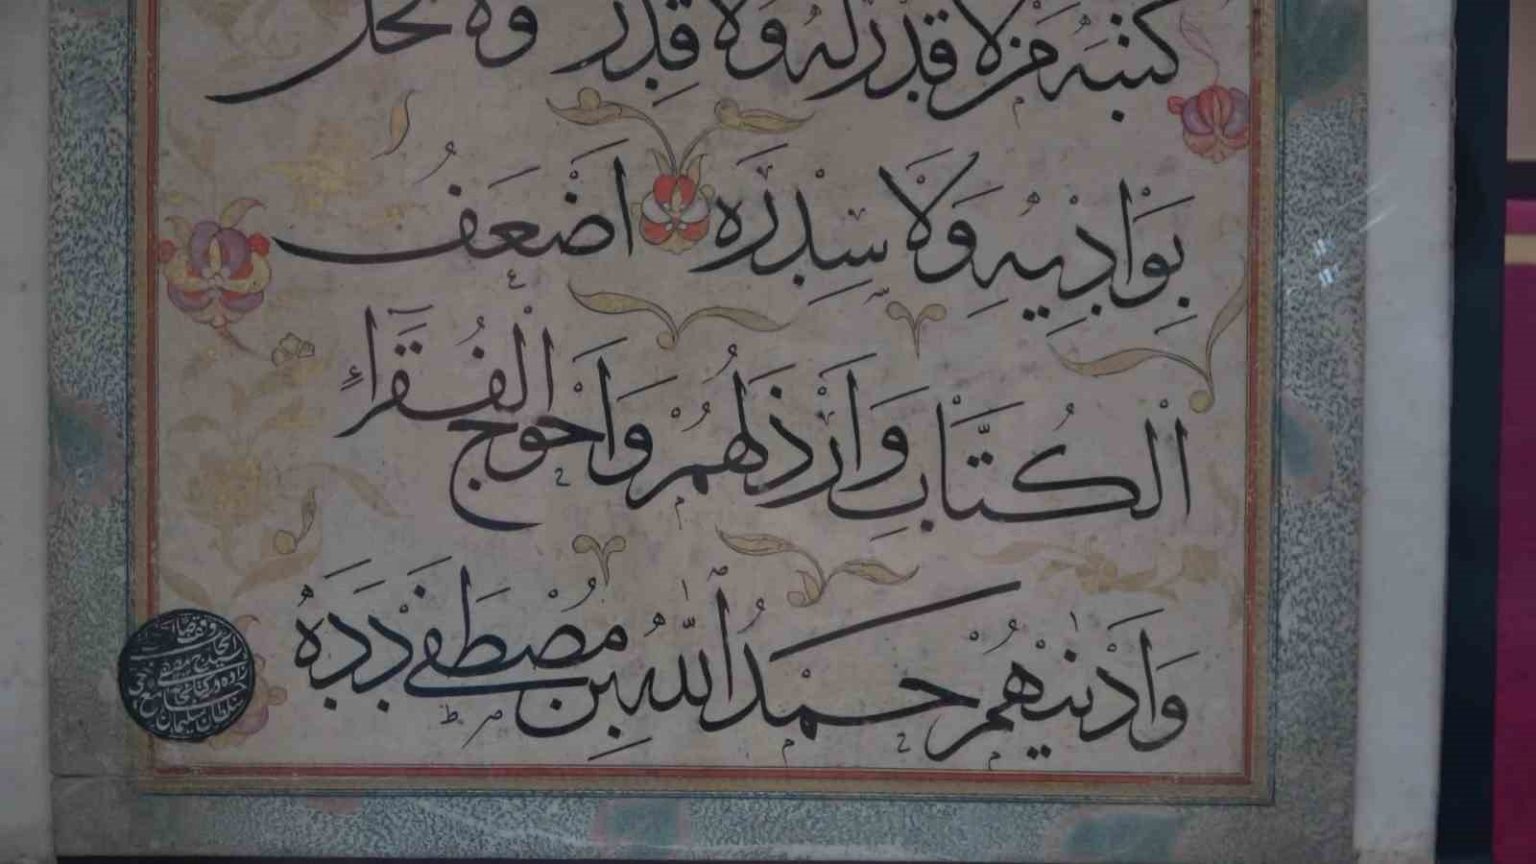 كتبه من لا قدر له ولا قدر ولا نحل
بِوَادِيْهِ وَلَا سِدْرَه اَضْعَفُ
اَلْكُتَّابِ وَاَرْذَلُهُمْ وَاَحْوَجُ الْفُقَرَاءِ
وَاَدْنٰيهُمْ حَمْدُ اللّٰهِ بْنِ مُصْطَفٰى دَدَهْ
سلطان سليمان